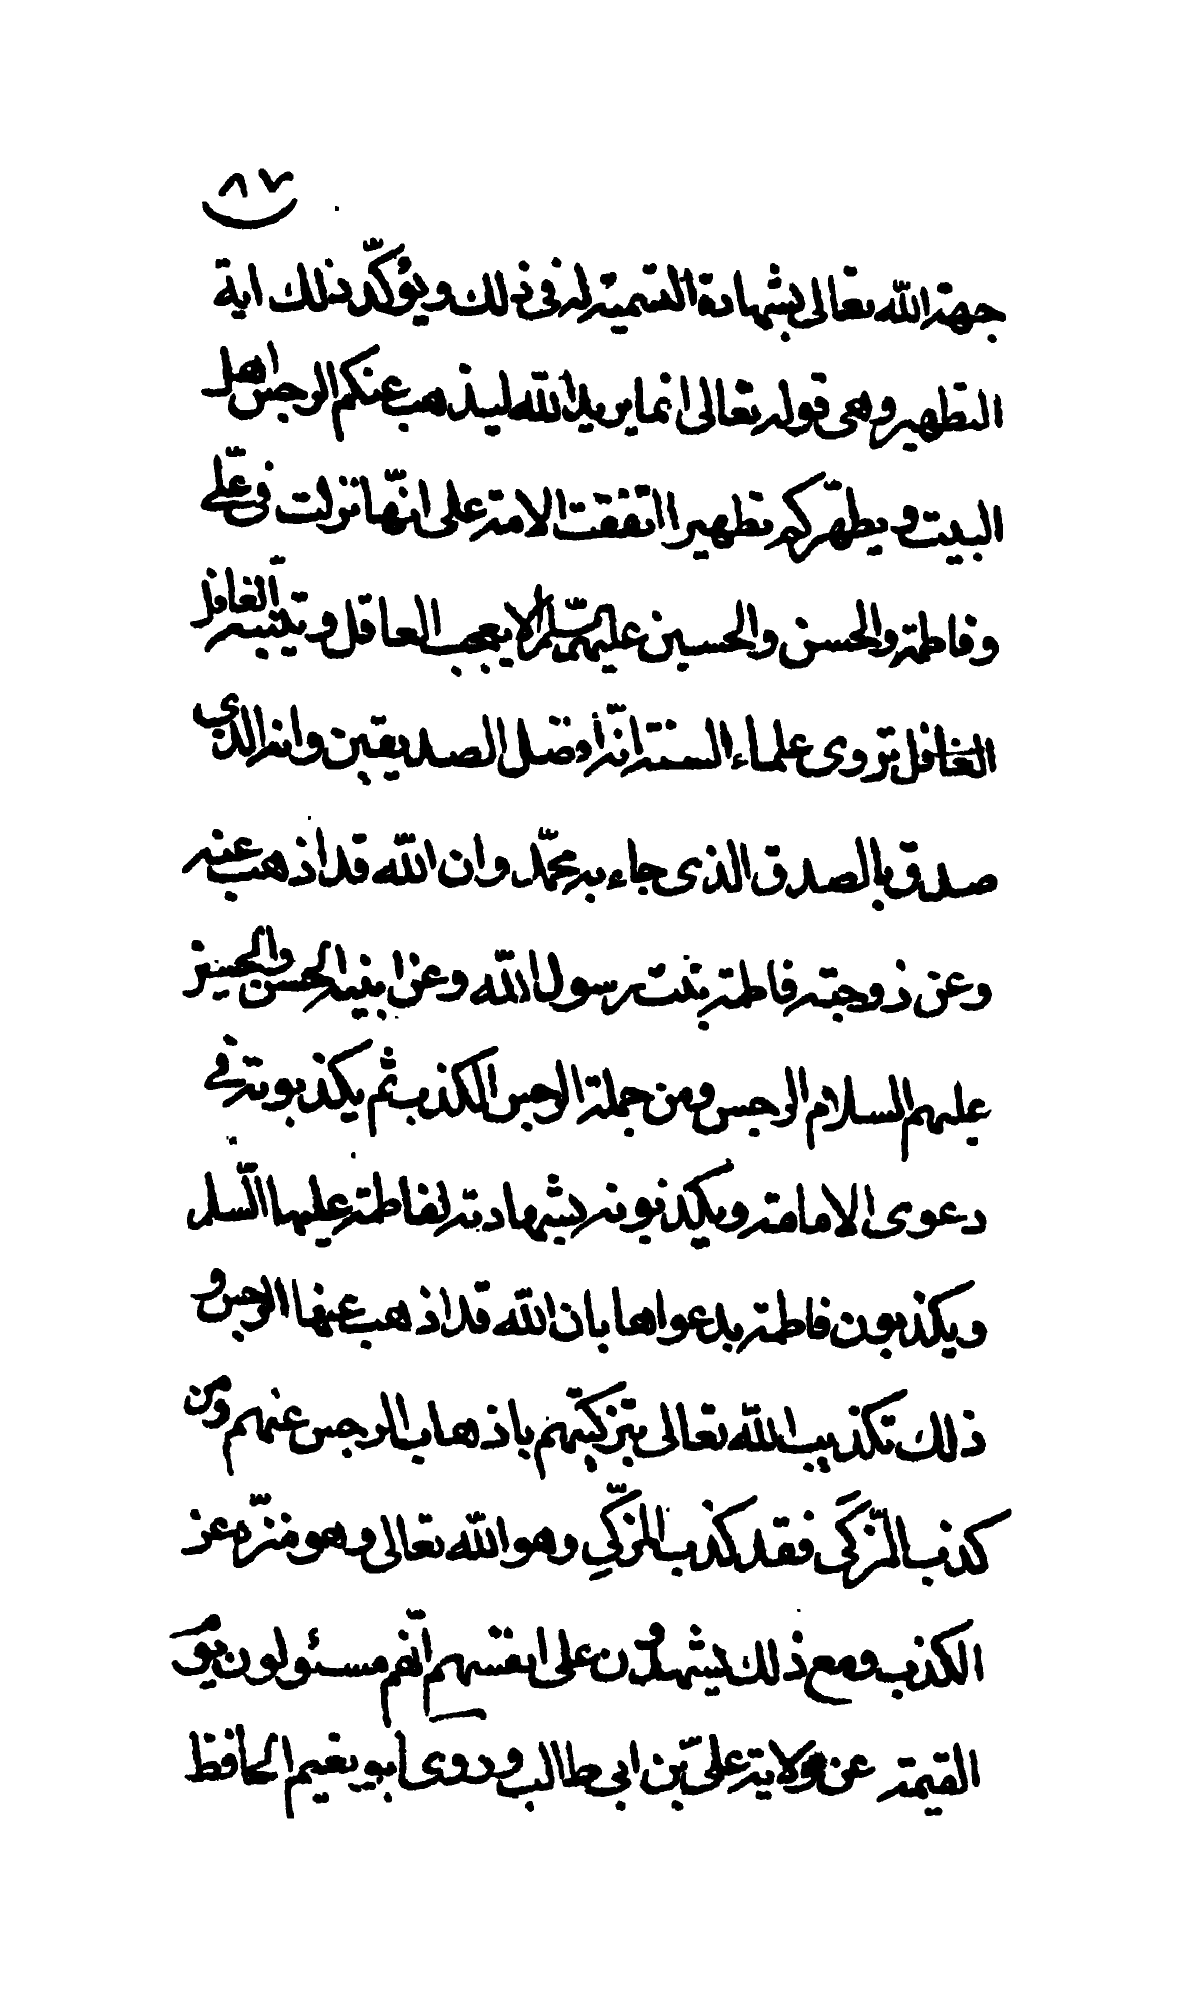 ٨٧
جهة الله تعالى بشهادة التسمية له في ذلك ويؤكّد ذلك اية
التطهير وهى قوله تعالى انما يريد الله ليذهب عنكم الرجس اهل
البيت ويطهّركم تطهيرا اتفقت الامة على انّها نزلت فى علّي
وفاطمة والحسن والحسين عليهم السّلم الا يعجب العاقل ويتبسر الغافل
الغافل تروى علماء السنة انّه افضل الصديقين وانه الذي
صدق بالصدق الذى جاء به محمّد وان الله قد اذهب عنه
وعن زوجته فاطمة بنت رسول الله وعن ابنيه الحسن والحسين
عليهم السلام الرجس ومن جملة الرجس الكذب ثم يكذبونه في
دعوى الامامة ويكذبونه بشهادته لفاطمة عليها السّلم
ويكذبون فاطمة بدعواها بان الله قد اذهب عنها الرجس و
ذلك تكذيب الله تعالى بتزكيتهم باذهاب الرجس عنهم ومن
كذب المزّكَى فقد كذب المزكّيِ وهو الله تعالى وهو منزّه عن
الكذب ومع ذلك يشهدون على انفسهم انّهم مسئولون يوم
القيمة عن ولاية علىّ بن ابي طالب وروى ابو نعيم الحافظ